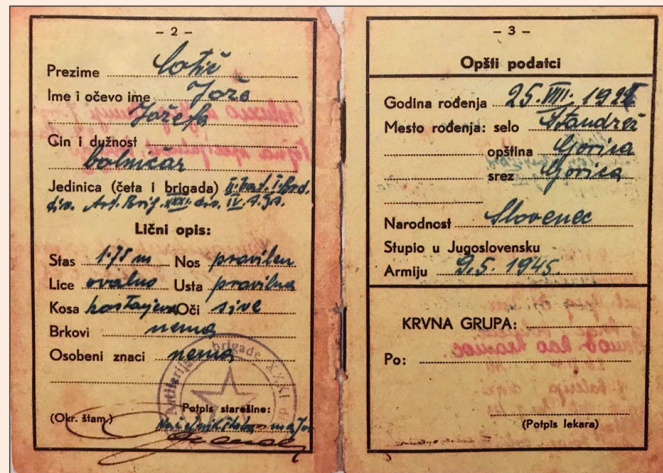 – 2 –
Prezime
Ime i očevo ime Jože
Jožefa
Čin i dužnost
bolničar
Jedinica (četa i brigada)
div. Art. Brig. XXXI. div. IV.
Lični opis:
Stas 1·75 m Nos pravilen
Lice ovalno Usta pravilna
Kosa kostanjeva Oči sive
Brkovi nema
Osobeni znaci nema
brigade XXXI
(Okr. štam.)
Potpis starešine:
– 3 –
Opšti podatci
Godina rođenja 25. VIII. 192
Mesto rođenja: selo Štandrež
opština Gorica
srez Gorica
Narodnost Slovenec
Stupio u Jugoslovensku
Armiju 9.5. 1945.
KRVNA GRUPA:
Po:
(Potpis lekara)